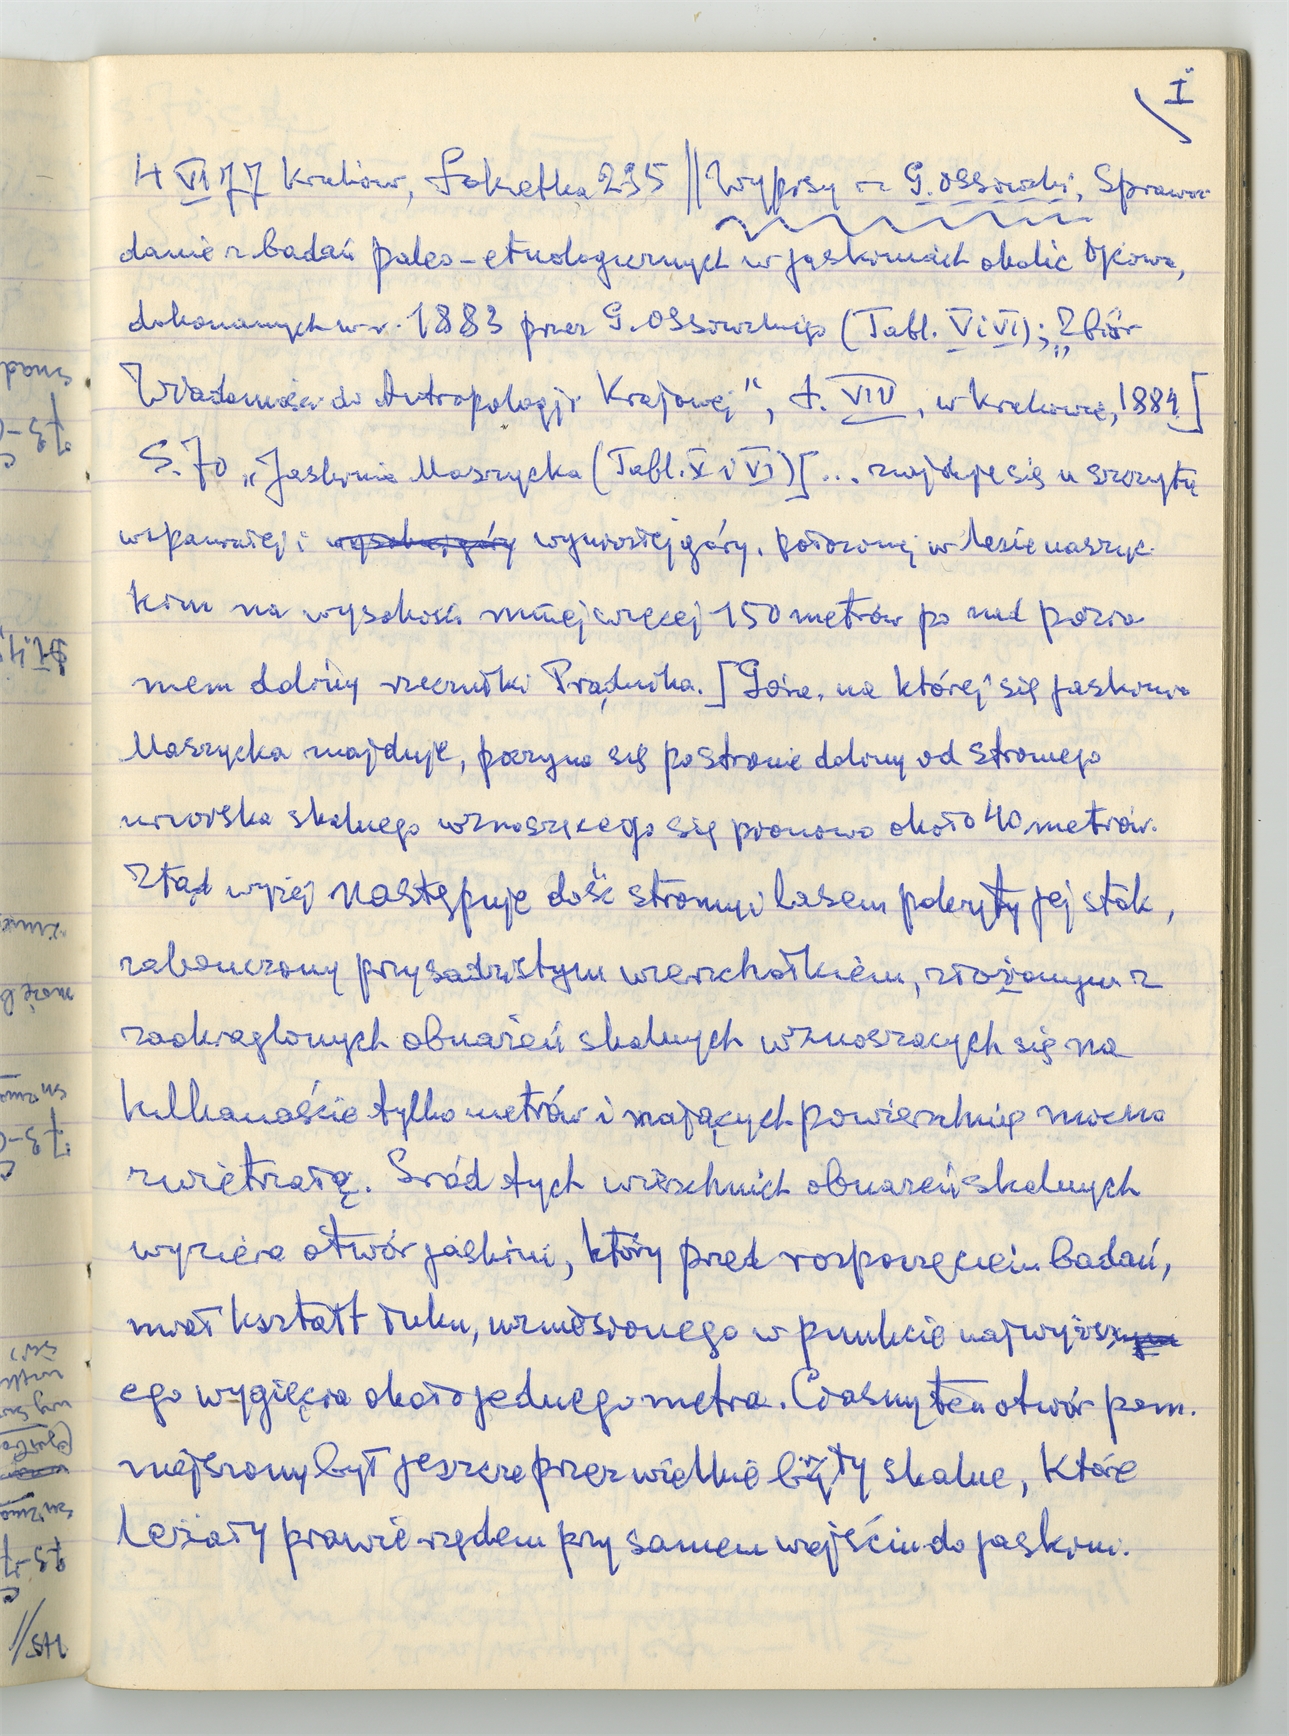 I
4 VI 77 Kraków, Łokietka 235 || Wypisy z G. Ossowski, Sprawoz-
danie z badań paleo-etnologicznych w jaskiniach okolic Ojcowa,
dokonanych w r. 1883 przez G. Ossowskiego (Tabl. V i VI); „Zbiór
Wiadomości do Antropologji Krajowej", t. VIII, w Krakowie, 1884]
S. 70 „Jaskinia Maszycka (Tabl. V i VI) [... znajduje się u szczytu
wspaniałej i wysokiej góry wyniosłej góry, położonej w lesie maszyc-
kim na wysokości mniej więcej 150 metrów po nad pozio-
mem doliny rzeczułki Prądnika. [Góra, na której się jaskinia
Maszycka znajduje, poczyna się po stronie doliny od stromego
urwiska skalnego wznoszącego się pionowo około 40 metrów.
Ztąd wyżej następuje dość stromy i lasem pokryty jej stok,
zakończony przysadzistym wierzchołkiem, złożonym z
zaokrąglonych obnażeń skalnych wznoszących się na
kilkanaście tylko metrów i mających powierzchnię mocno
zwietrzałą. Sród tych wierzchnich obnażeń skalnych
wyziera otwór jaskini, który przed rozpoczęciem badań,
miał kształt łuku, wzniesionego w punkcie najwyższ
ego wygięcia około jednego metra. Ciasny ten otwór pom-
niejszony był jeszcze przez wielkie bryły skalne, które
leżały prawie rzędem przy samem wejściu do jaskini.